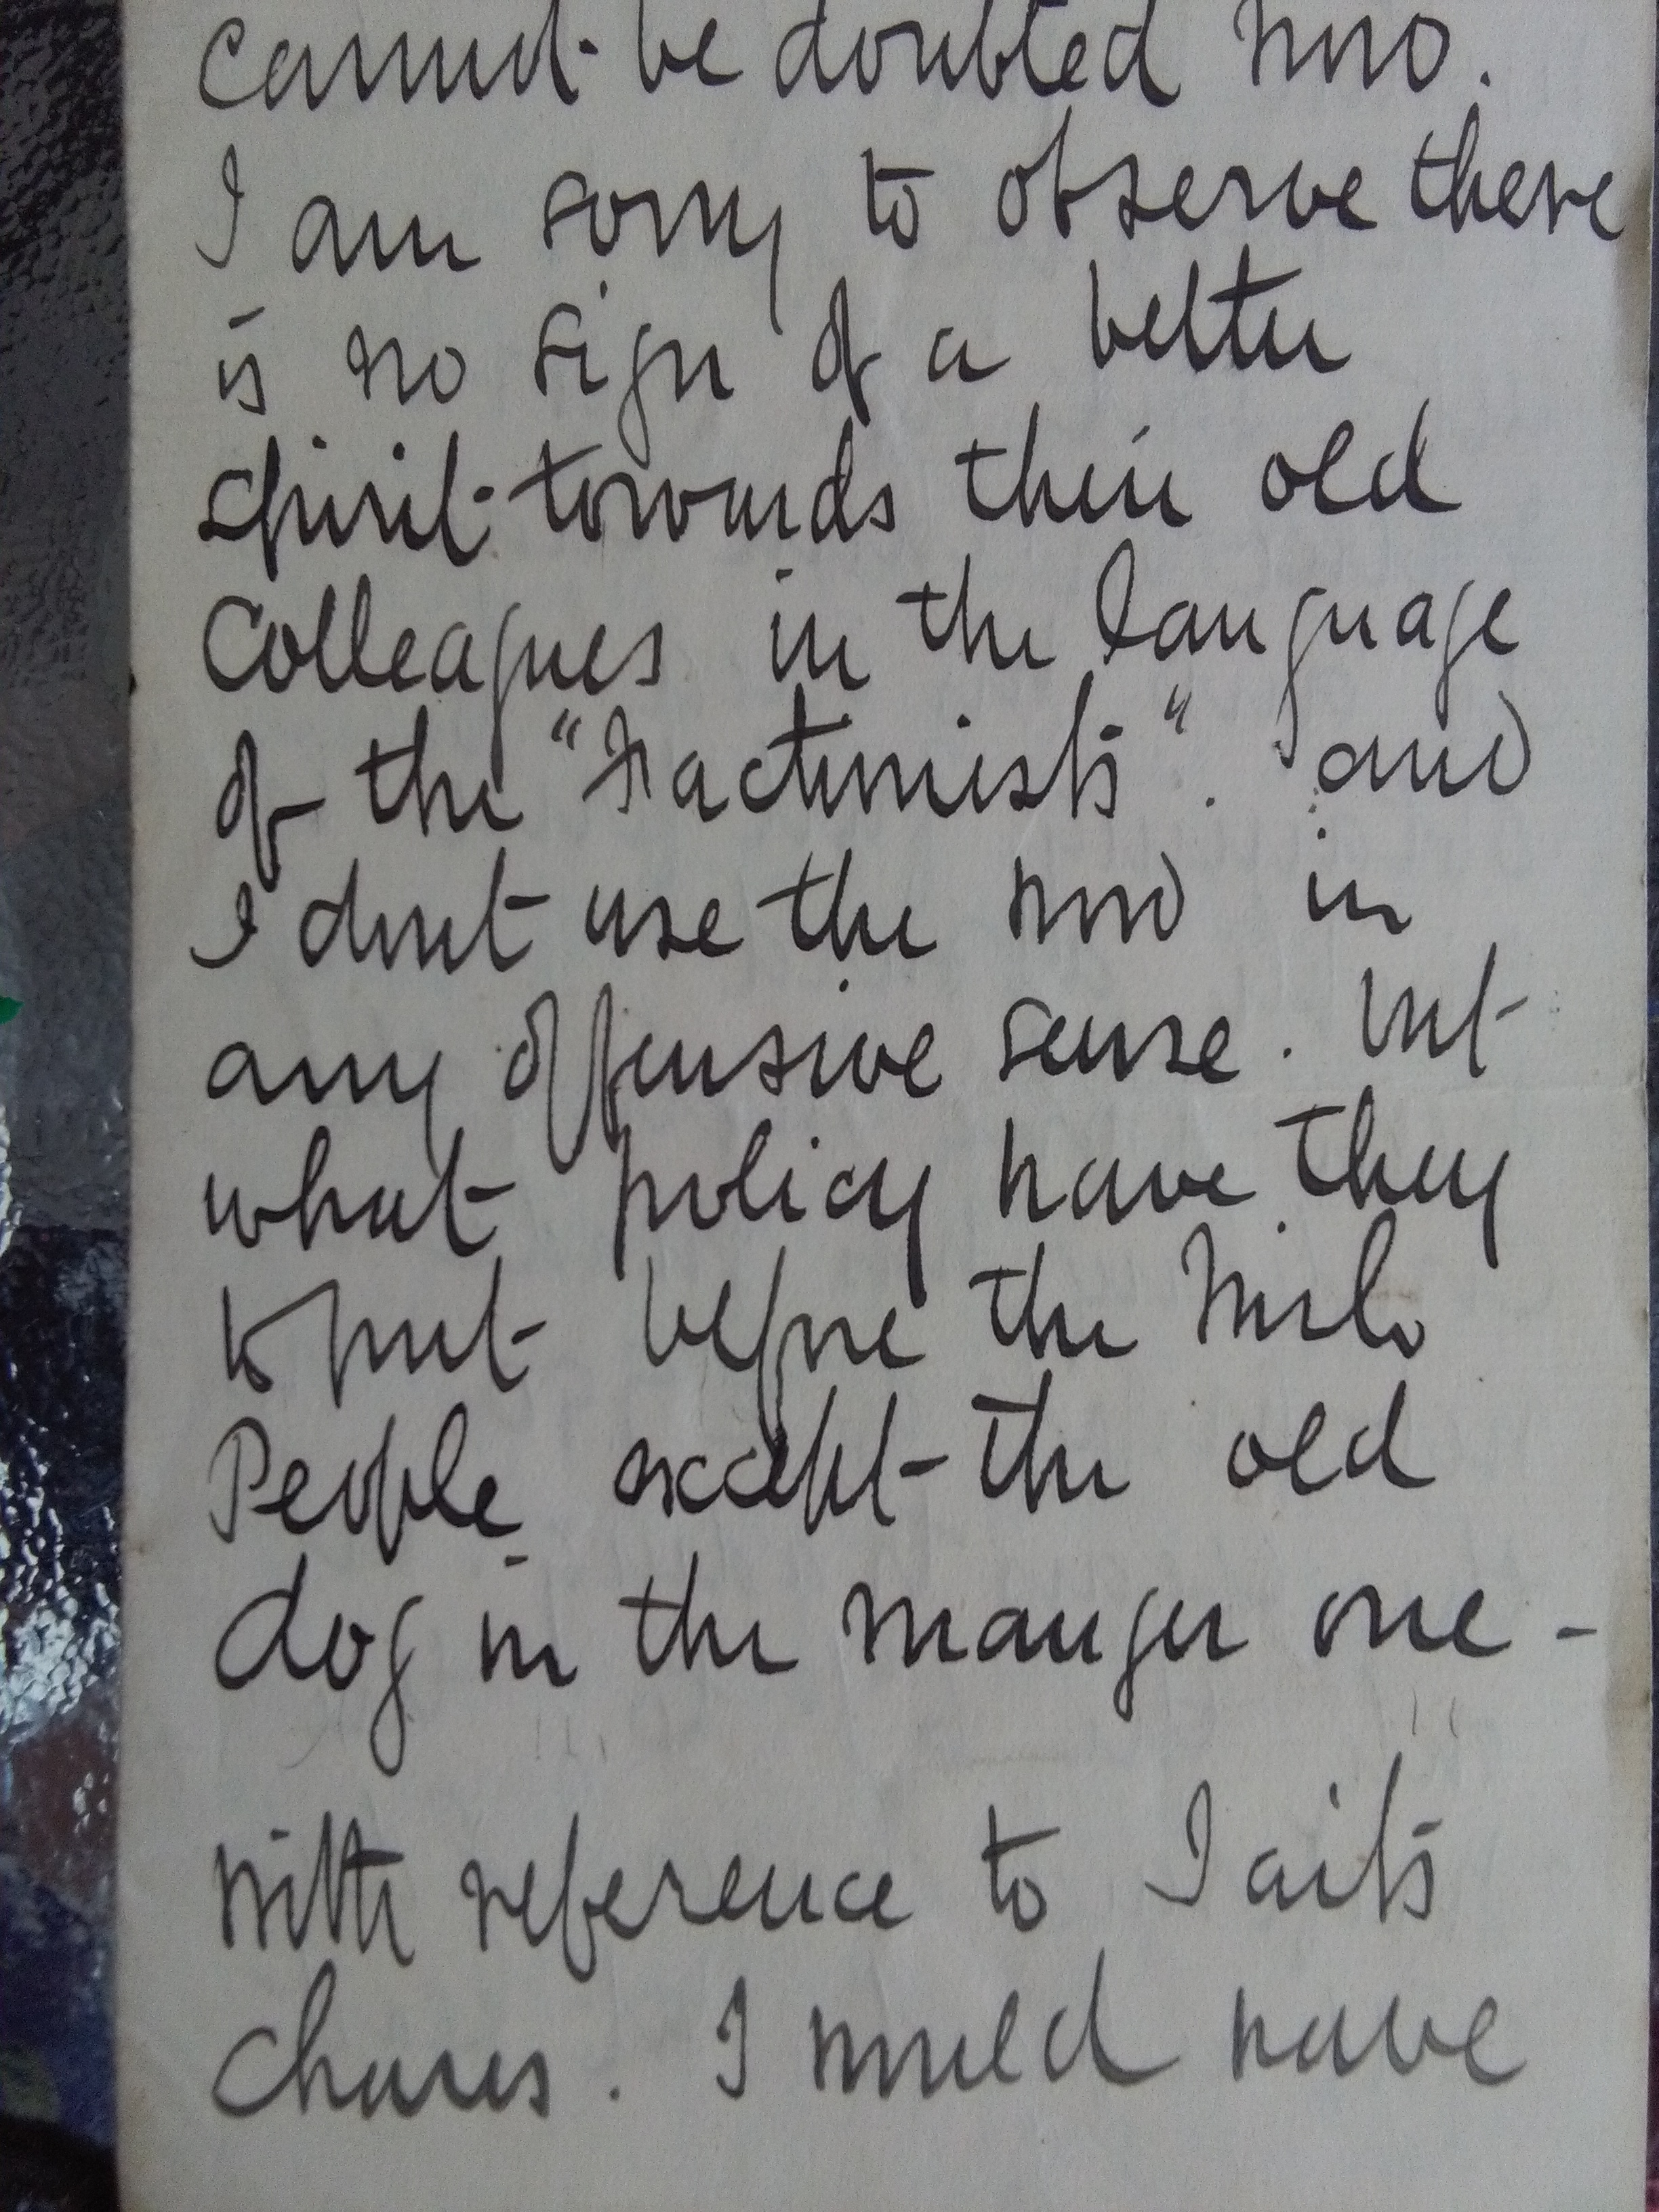 cannot be doubted now.
I am sorry to observe there
is no sign of a better
spirit towards their old
Colleagues in the language
of the "Factionists". and
I dont use the word in
any offensive sense. but
what policy have they
to put before the Irish
People except the old
dog in the manger one -
With reference to Tait's
Chares. I would have